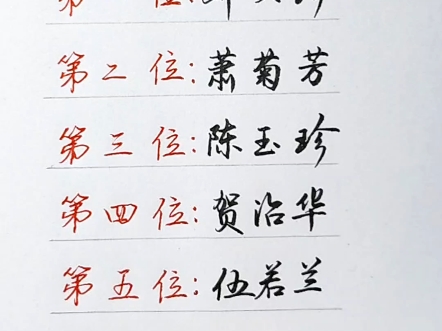 第二位:萧菊芳
第三位:陈玉珍
第四位:贺治华
第五位:伍若兰